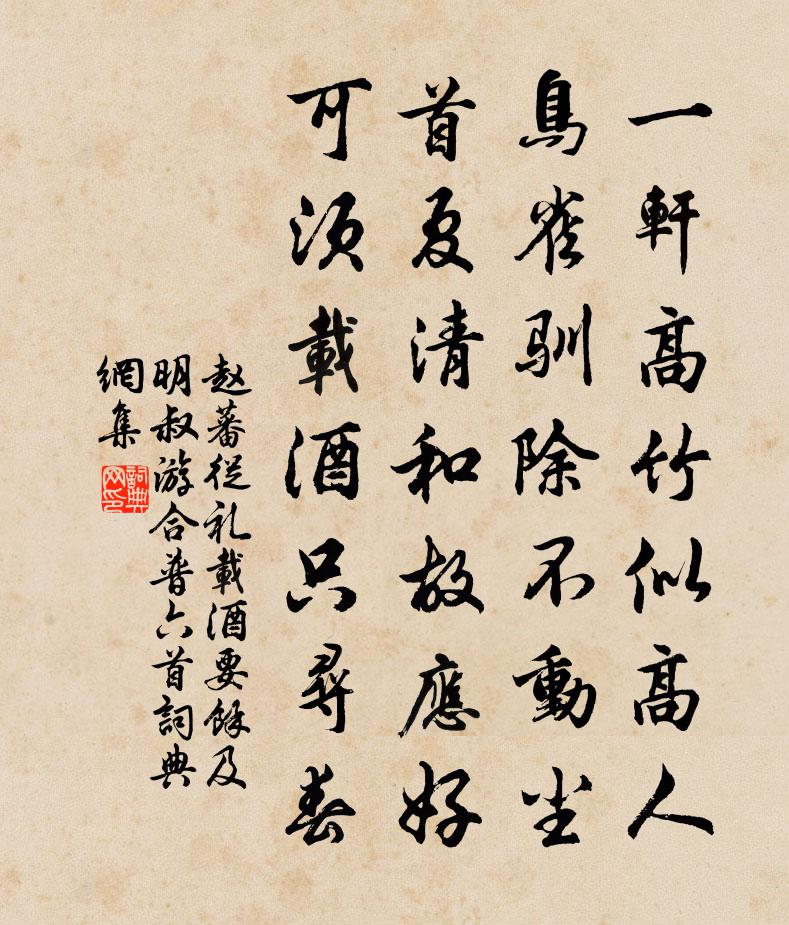 一軒高竹似高人
鳥雀驯除不動尘
首夏清和故應好
可須載酒只尋春
赵蕃從礼載酒要餘及
明叔游合普六首詞典
網集
詞典
网印